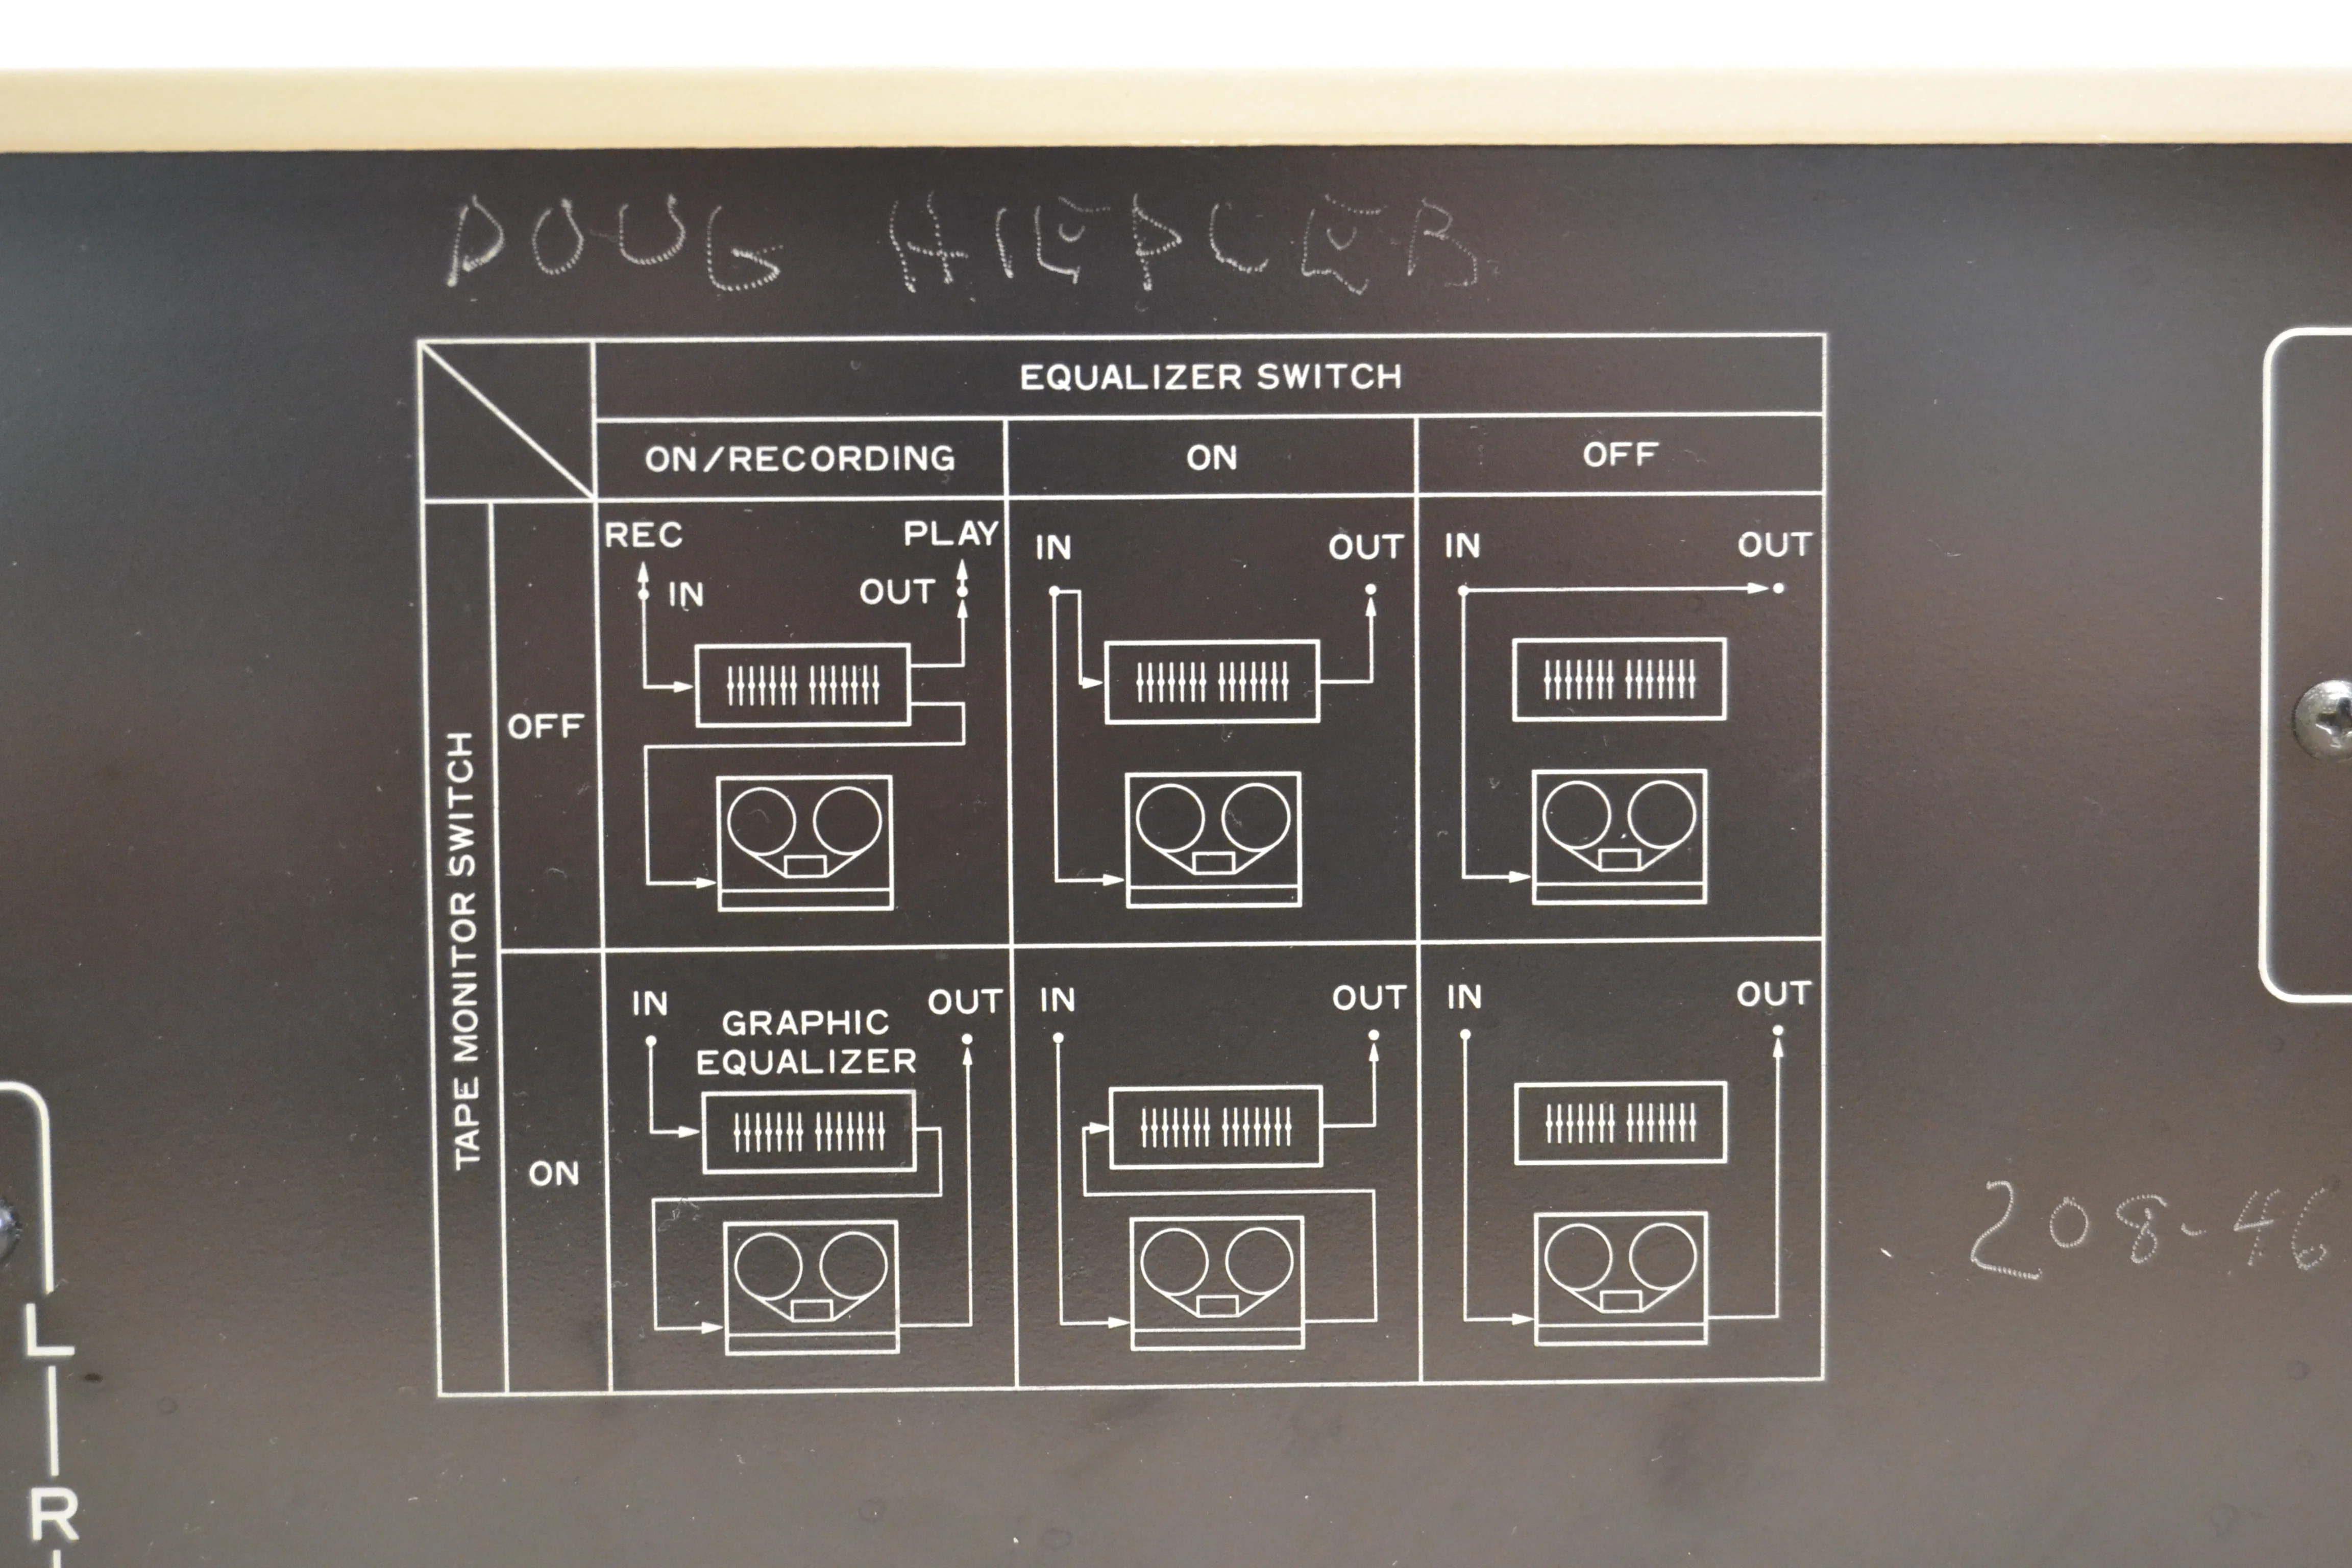 DOUG HIEPLEB
EQUALIZER SWITCH
ON/RECORDING ON OFF
TAPE MONITOR SWITCH
OFF
REC PLAY
IN OUT
IN OUT
IN OUT
ON
IN OUT
GRAPHIC
EQUALIZER
IN OUT
IN OUT
208-46
L
R